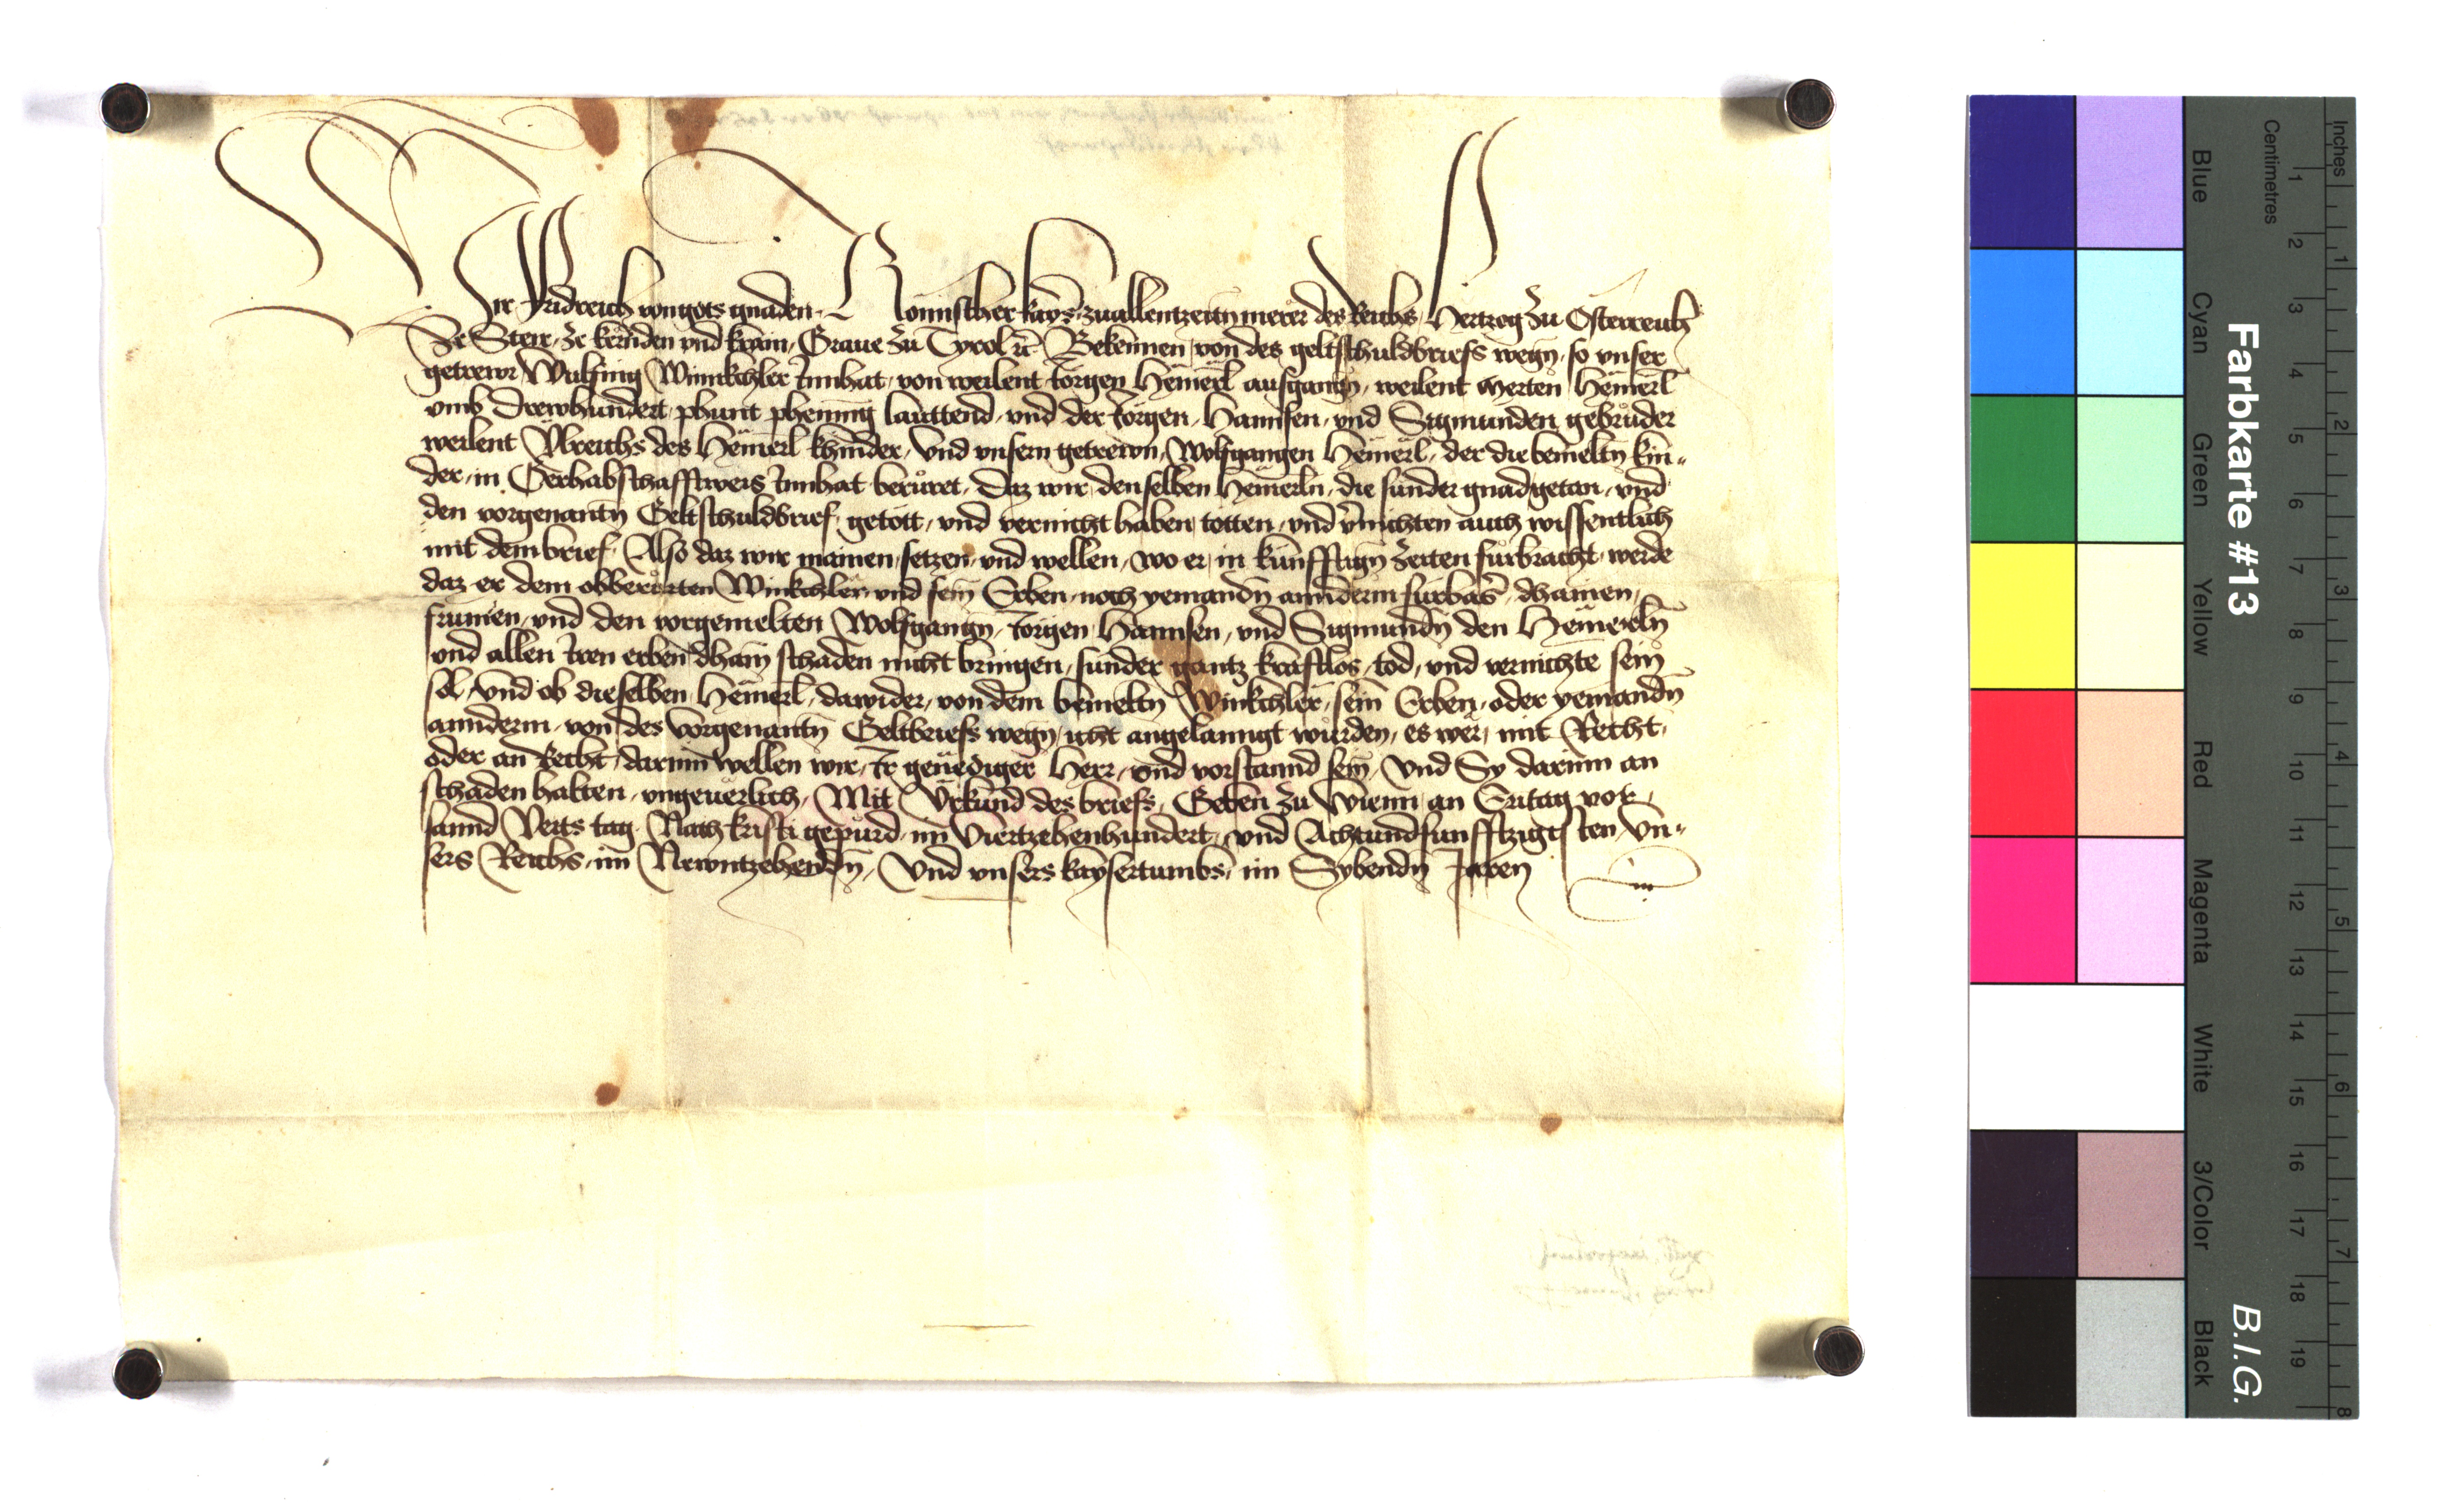 Wir Fridreich von gots gnaden Romischer kayser zuallentzeiten merer des Reichs Hertzog zu Osterreich
ze Steir ze kernden vnd krain Graue zu Tyrol etc Bekennen von des geltschuldbriefs wegn so vnser
getrewr Wulfing Winnkchler innhat von weilent Jorgen Hemerl ausgangn weilent Merten Hemerl
vmb Drewhundert phunt phening lauttend vnd der Jorgen Hannsen vnd Sigmunden gebruder
weilent des Hemerl khinder Vnd vnsern getrewn Wolfgangen Hemerl der die bemeltn kin-
der in Gerhabschafftweis innhat beruret Daz wir denselben Hemerln die sunder gnad getan vnd
den vorgenantn Geltschuldbrief getott vnd vernicht haben totten vnd vernichten auch wissentlich
mit dem brief Also daz wir mainen setzen vnd wellen wo er in kunfftign zeiten furbracht werde
daz er dem obberurten Winkchler vnd sein Erben noch yemandn anndern furbaser dhainen
frumen vnd den vorgemelten Wolfgangn Jorgen Hannsen vnd Sigmundn den Hemerln
vnd allen iren erben dhain schaden nicht bringen sunder gantz kraftlos tod vnd vernichte sein
sol Vnd ob dieselben Hemerl dawider von dem bemeltn Winkchler sein Erben oder yemandn
anndern von des vorgenantn Geltbriefs wegn icht angelanngt wurden es wer mit Recht
oder an Recht darinn wellen wir Ir genediger Herr vnd vorstannd sein Vnd Sy darinn an
schaden halten vngeuerlich Mit Vrkund des briefs Geben zu Wienn an Eritag vor
sannd Veits tag Nach kristi gepurd im Viertzehenhundert vnd Achtundfunfftzigisten Vn-
sers Reichs im Newntzehendn Vnd vnsers kaysertumbs im Sybendn Jaren
Farbkarte #13
B.I.G.
Inches
1 2 3 4 5 6 7 8
Centimetres
1 2 3 4 5 6 7 8 9 10 11 12 13 14 15 16 17 18 19
Blue
Cyan
Green
Yellow
Red
Magenta
White
3/Color
Black